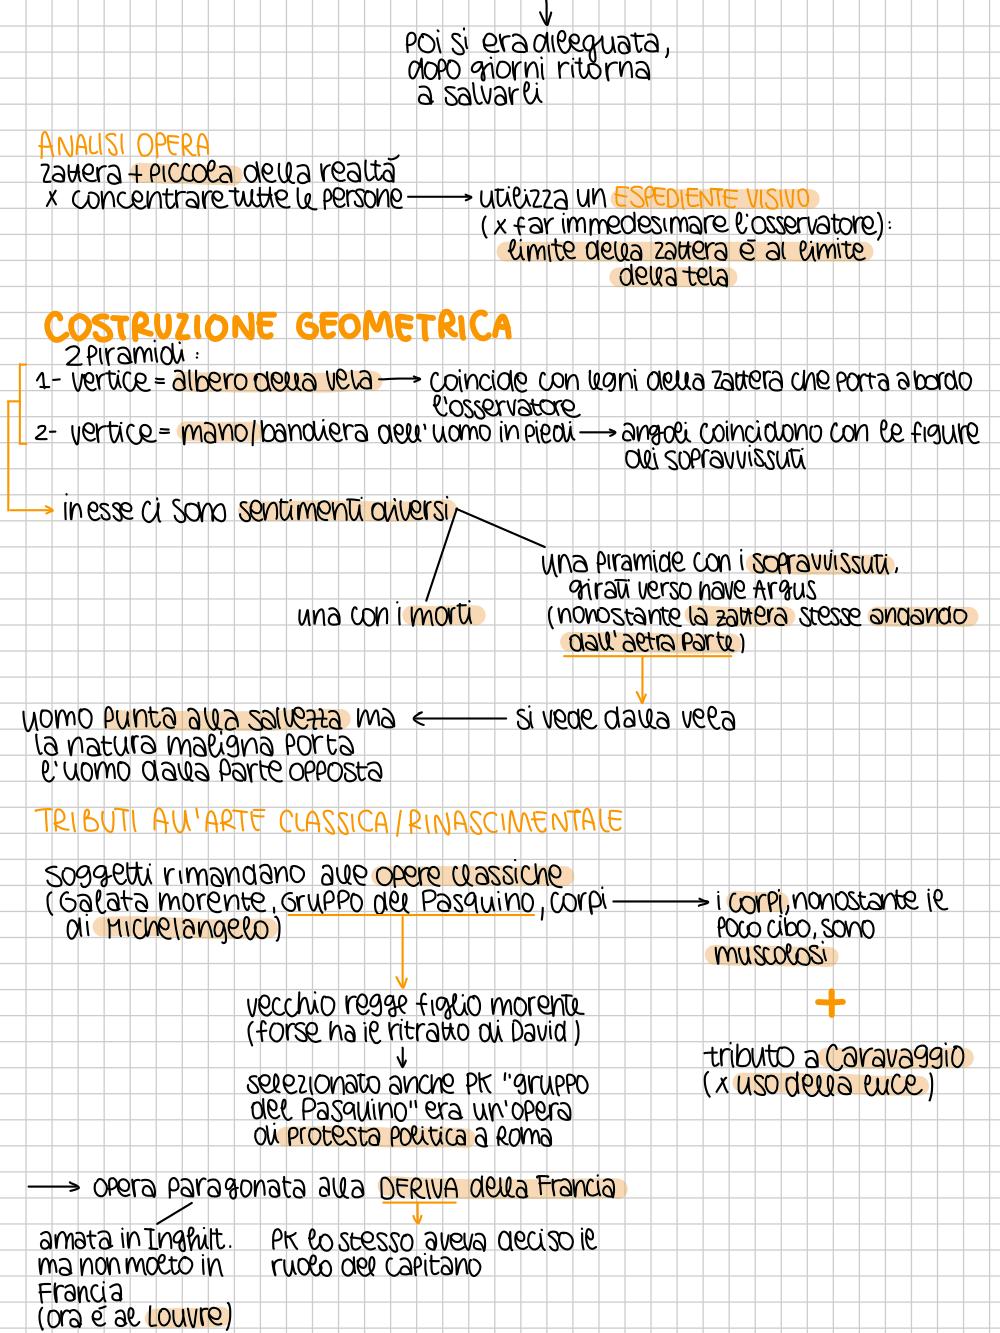 poi si era dileguata,
dopo giorni ritorna
a salvarli
ANALISI OPERA
zattera + piccola della realtà
x concentrare tutte le persone → utilizza un ESPEDIENTE VISIVO
(x far immedesimare l'osservatore):
limite della zattera è al limite
della tela
COSTRUZIONE GEOMETRICA
2 piramidi:
1- vertice = albero della vela → coincide con legni della zattera che porta a bordo
l'osservatore
2- vertice = mano/bandiera dell'uomo in piedi → angoli coincidono con le figure
dei sopravvissuti
→ in esse ci sono sentimenti diversi
una piramide con i sopravvissuti,
girati verso nave Argus
una con i morti
(nonostante la zattera stesse andando
dall'altra parte)
uomo punta alla salvezza ma ← si vede dalla vela
la natura maligna porta
l'uomo dalla parte opposta
TRIBUTI ALL'ARTE CLASSICA/RINASCIMENTALE
soggetti rimandano alle opere classiche
(Galata morente, gruppo del Pasquino, corpi → i corpi, nonostante il
di Michelangelo)
poco cibo, sono
muscolosi
+
vecchio regge figlio morente
(forse ha il ritratto di David)
tributo a Caravaggio
(x uso della luce)
selezionato anche PK "gruppo
del Pasquino" era un'opera
di protesta politica a Roma
→ opera paragonata alla DERIVA della Francia
amata in Inghilt.
ma non molto in
Francia
(ora è al Louvre)
PK lo stesso aveva deciso il
ruolo del capitano